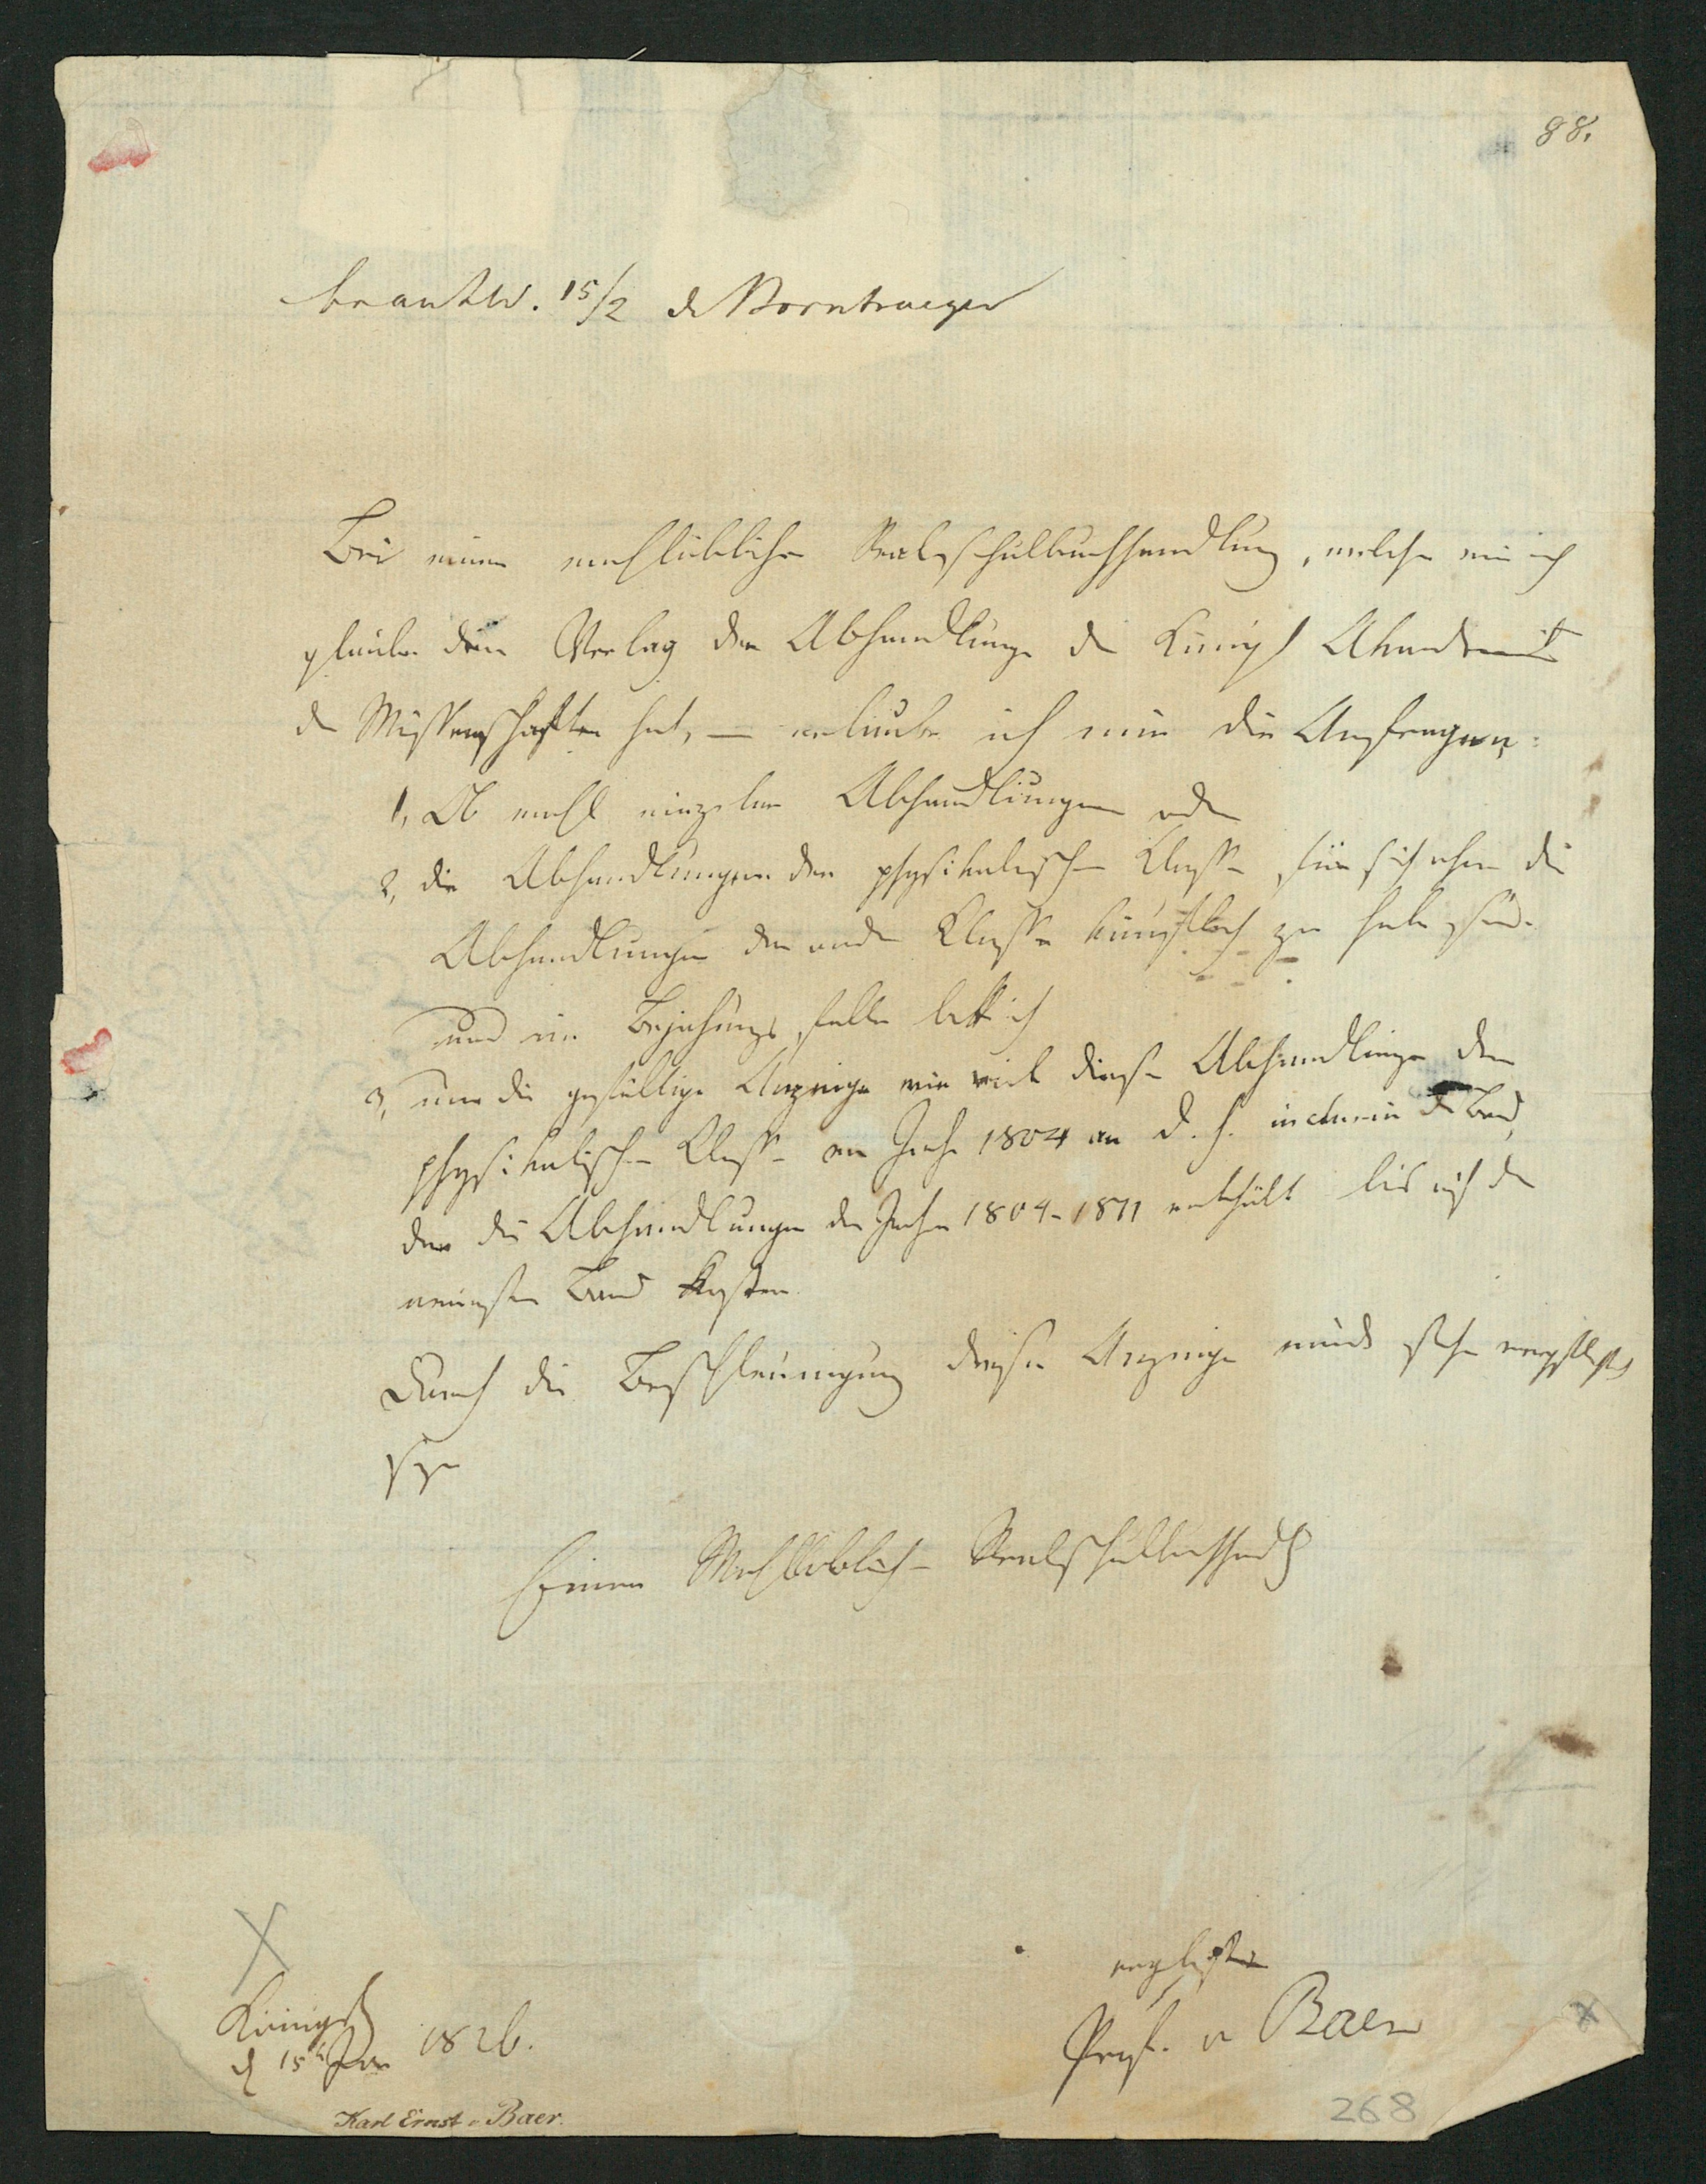 88.
beantw. 15/2 d Borntraeger
Bei einer wohllöblichen Realschulbuchhandlung, welche wie ich
glaube den Verlag der Abhandlungen der Königl Akademie
der Wissenschaften hat, — erlaube ich mir die Anfragen:
1, Ob wohl einzelne Abhandlungen oder
2, die Abhandlungen der physikalischen Classe für sich ohne die
Abhandlungen der andern Classen käuflich zu haben sind.
und im Bejahungsfalle bitte ich
3, um die gefällige Anzeige wie viel diese Abhandlungen der
physikalischen Classe vom Jahr 1804 an d. h. inclusive der Band,
der die Abhandlungen der Jahre 1804-1811 enthält bis auf den
neuesten Band kosten.
Durch die Beschleunigung dieser Anzeige würde sehr verpflichtet
seyn
Einer Wohllöblichen Realschulbuchhdlg
Königsb
d 15t Jan 1826.
ergebenster
Prof. v Baer
Karl Ernst v. Baer.
268